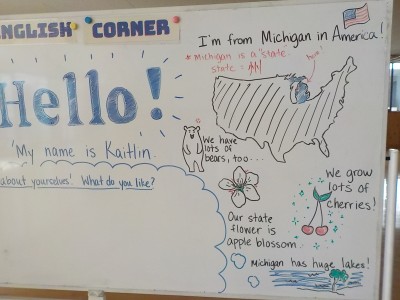 ENGLISH CORNER
I'm from Michigan in America!
* Michigan is a "state".
state = 州
Hello!
My name is Kaitlin.
What do you like?
We have
lots of
bears, too...
We grow
lots of
cherries!
Our state
flower is
apple blossom.
Michigan has huge lakes!